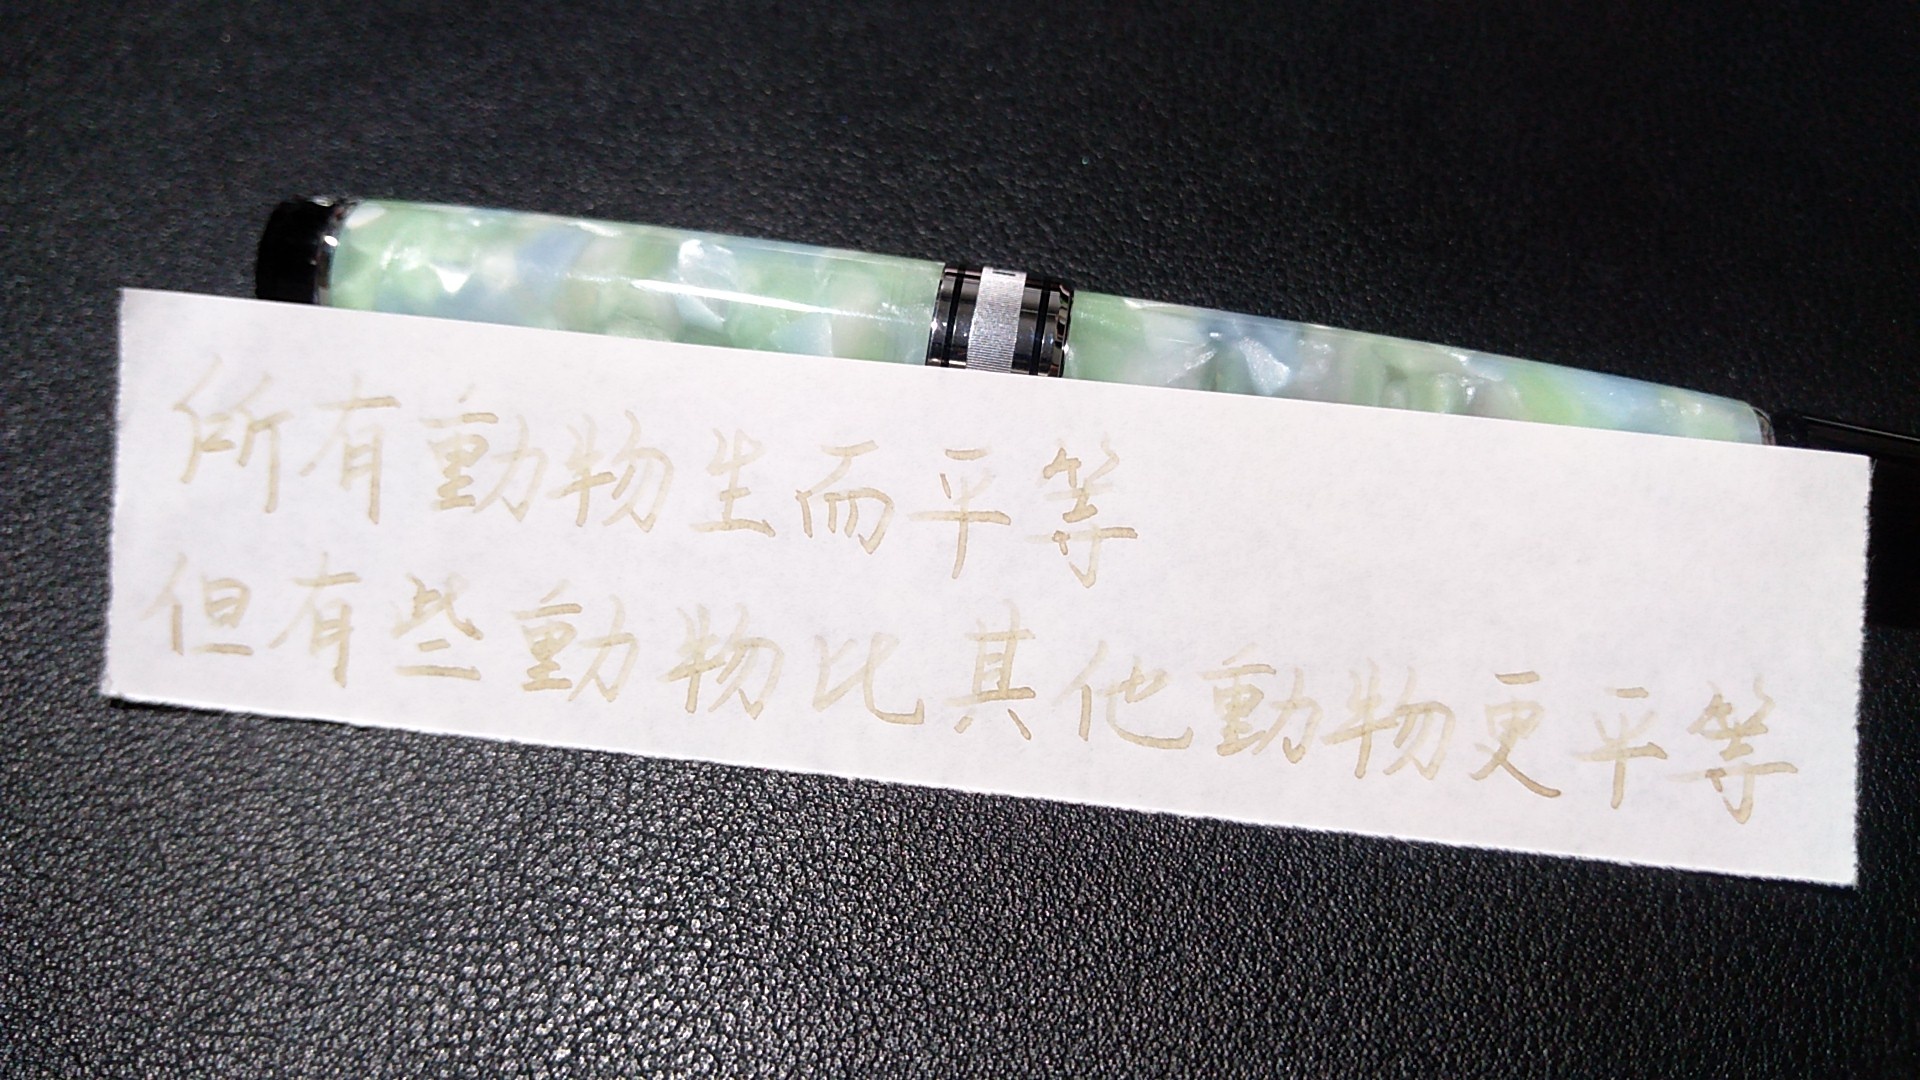 所有動物生而平等
但有些動物比其他動物更平等